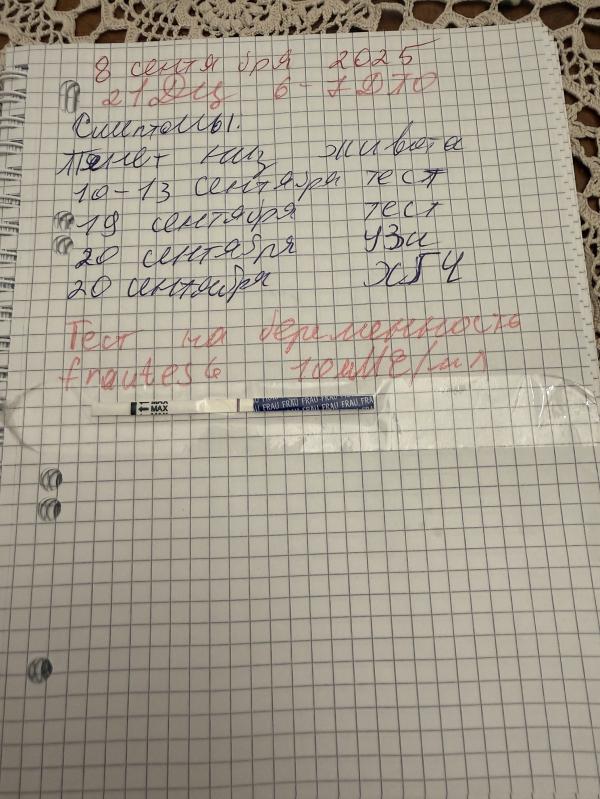 8 сентября 2025
21 ДЦ 6-7 ДПО
Симптомы:
Тянет низ живота
10-13 сентября тест
19 сентября тест
20 сентября УЗИ
20 сентября ХГЧ
Тест на беременность
frautest 10 мМЕ/мл
MAX
MAX
FRAU FRAU FRAU FRAU
U FRAU FRAU FRAU FRAU FRA